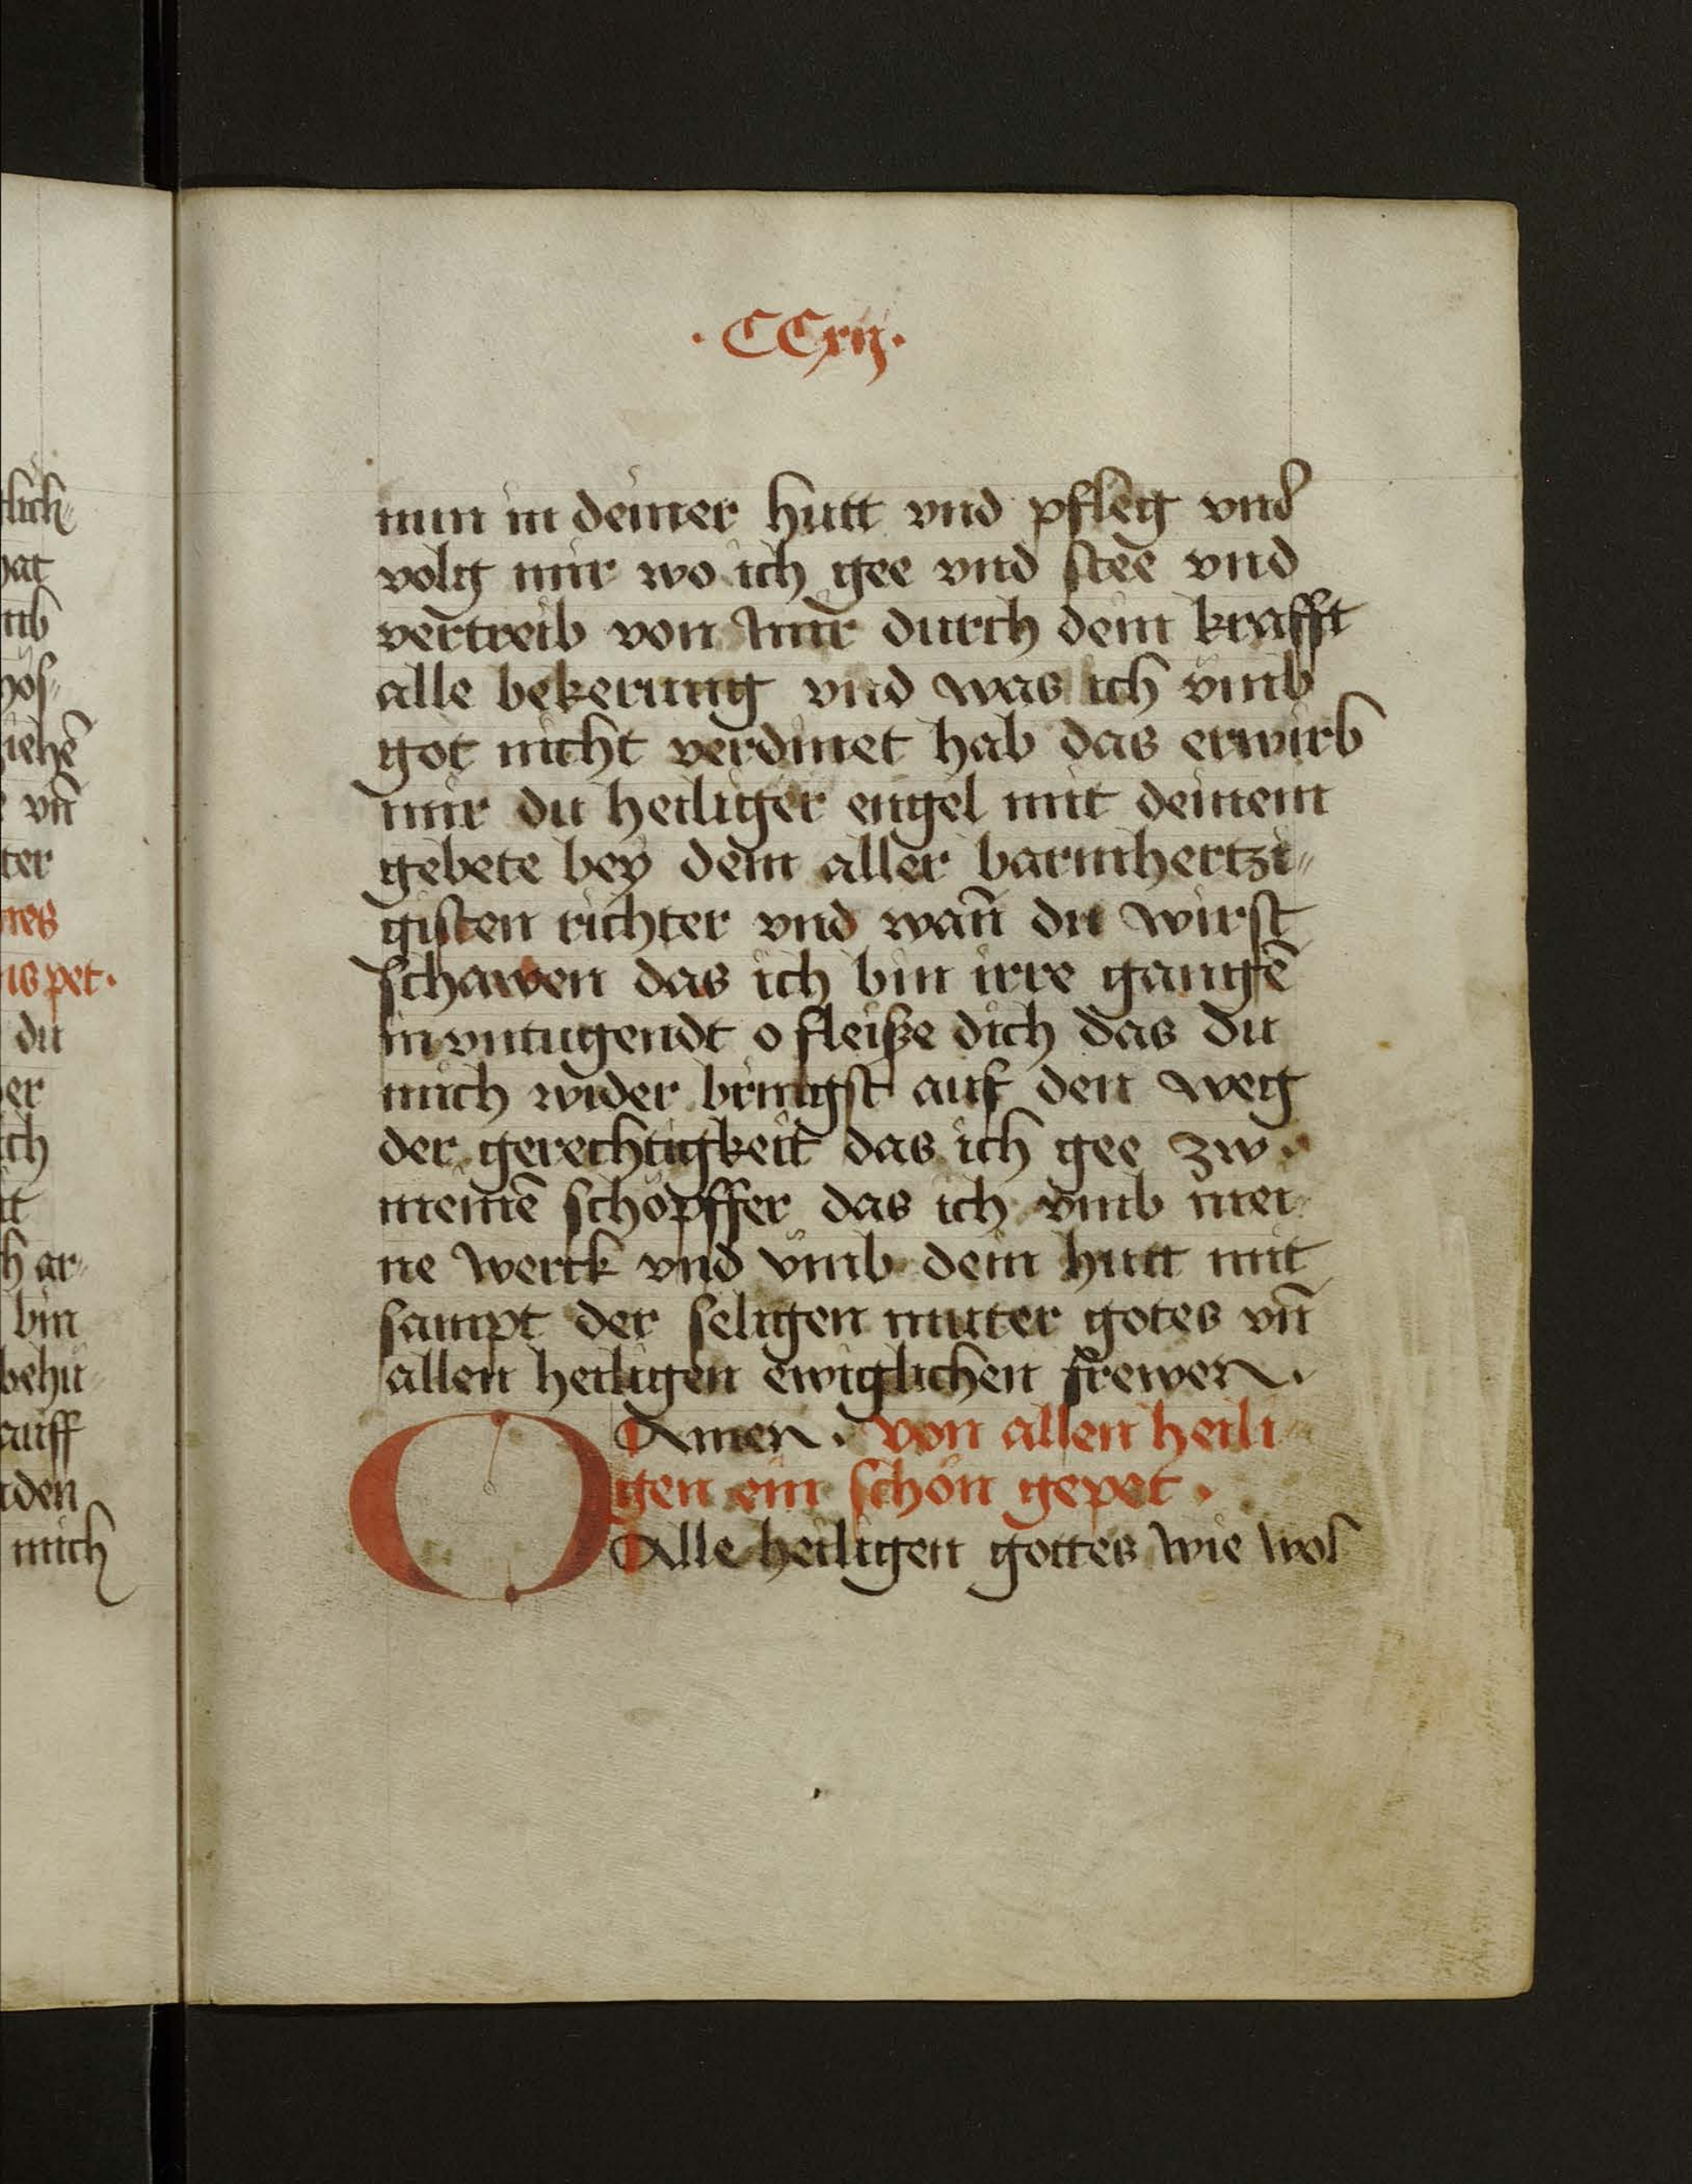 · CCxij ·
lich⸗
at
ub
ös⸗
iehē
vn̄
ter
res
is pet ·
du
er
ch
it
h ar⸗
bin
behü⸗
auff
den
mich
nun in deiner hutt vnd pfleg vnd
volg mir wo ich gee vnd stee vnd
vertreib von mir durch dein krafft
alle bekerung vnd was ich vmb
got nicht verdinet hab das erwirb
mir du heiliger engel mit deinem
gebete bey dem aller barmhertzi⸗
gisten richter vnd wan̄ du wirst
schawen das ich bin irre gangē
in vntugendt o fleiße dich das du
mich wider bringst auf den weg
der gerechtigkeit das ich gee zw
meinē schöpffer das ich vmb mei
ne werck vnd vmb dein hutt mit
sampt der seligen mutter gotes vn̄
allen heiligen ewiglichen frewen ·
Amen · von allen heili
gen ein schön gepet ·
O Alle heiligen gottes wie wol